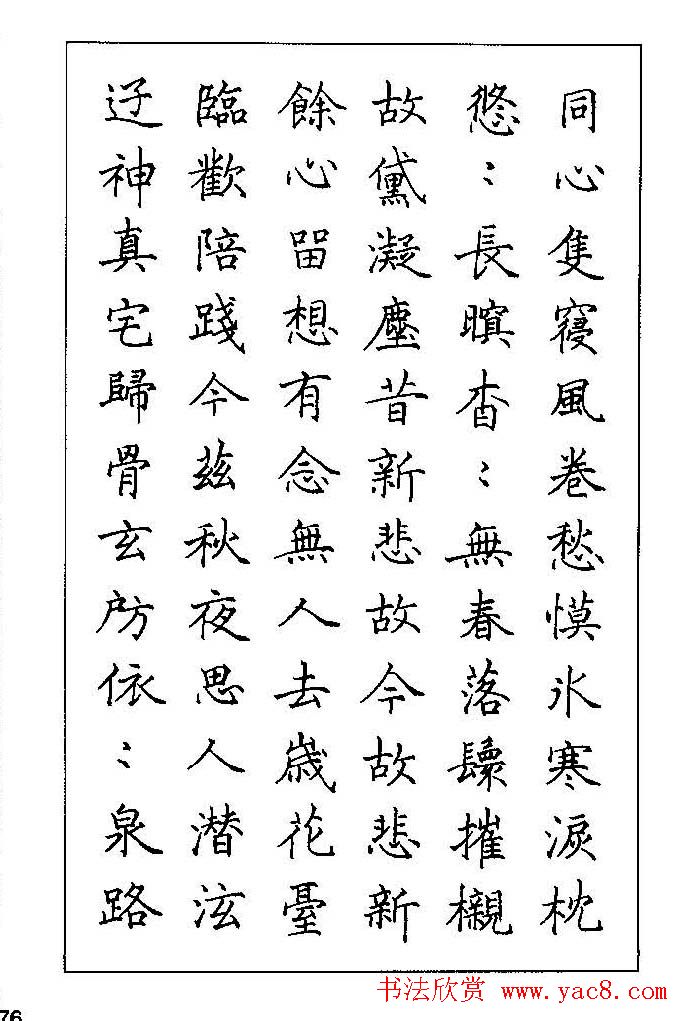 同心隻寢風卷愁慔氷寒淚枕
悠〻長暝杳〻無春落鬟摧櫬
故黛凝塵昔新悲故今故悲新
餘心留想有念無人去歲花臺
臨歡陪踐今茲秋夜思人潛泫
迓神真宅歸骨玄房依〻泉路
76
书法欣赏 www.yac8.com